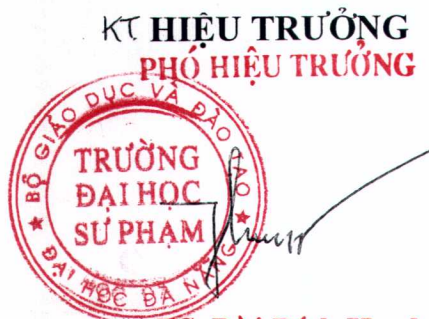 KT HIỆU TRƯỞNG
PHÓ HIỆU TRƯỞNG
BỘ GIÁO DỤC VÀ ĐÀO TẠO
TRƯỜNG
ĐẠI HỌC
SƯ PHẠM
★ ĐẠI HỌC ĐÀ NẴNG ★